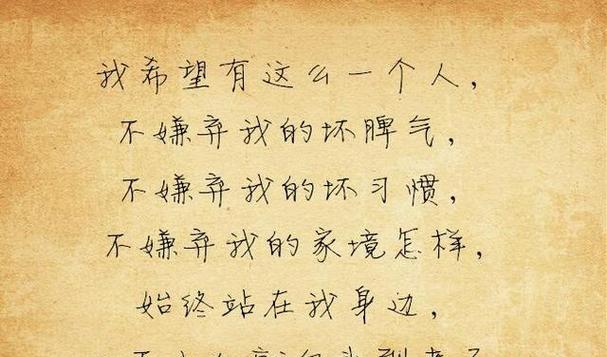 我希望有这么一个人，
不嫌弃我的坏脾气，
不嫌弃我的坏习惯，
不嫌弃我的家境怎样，
始终站在我身边，